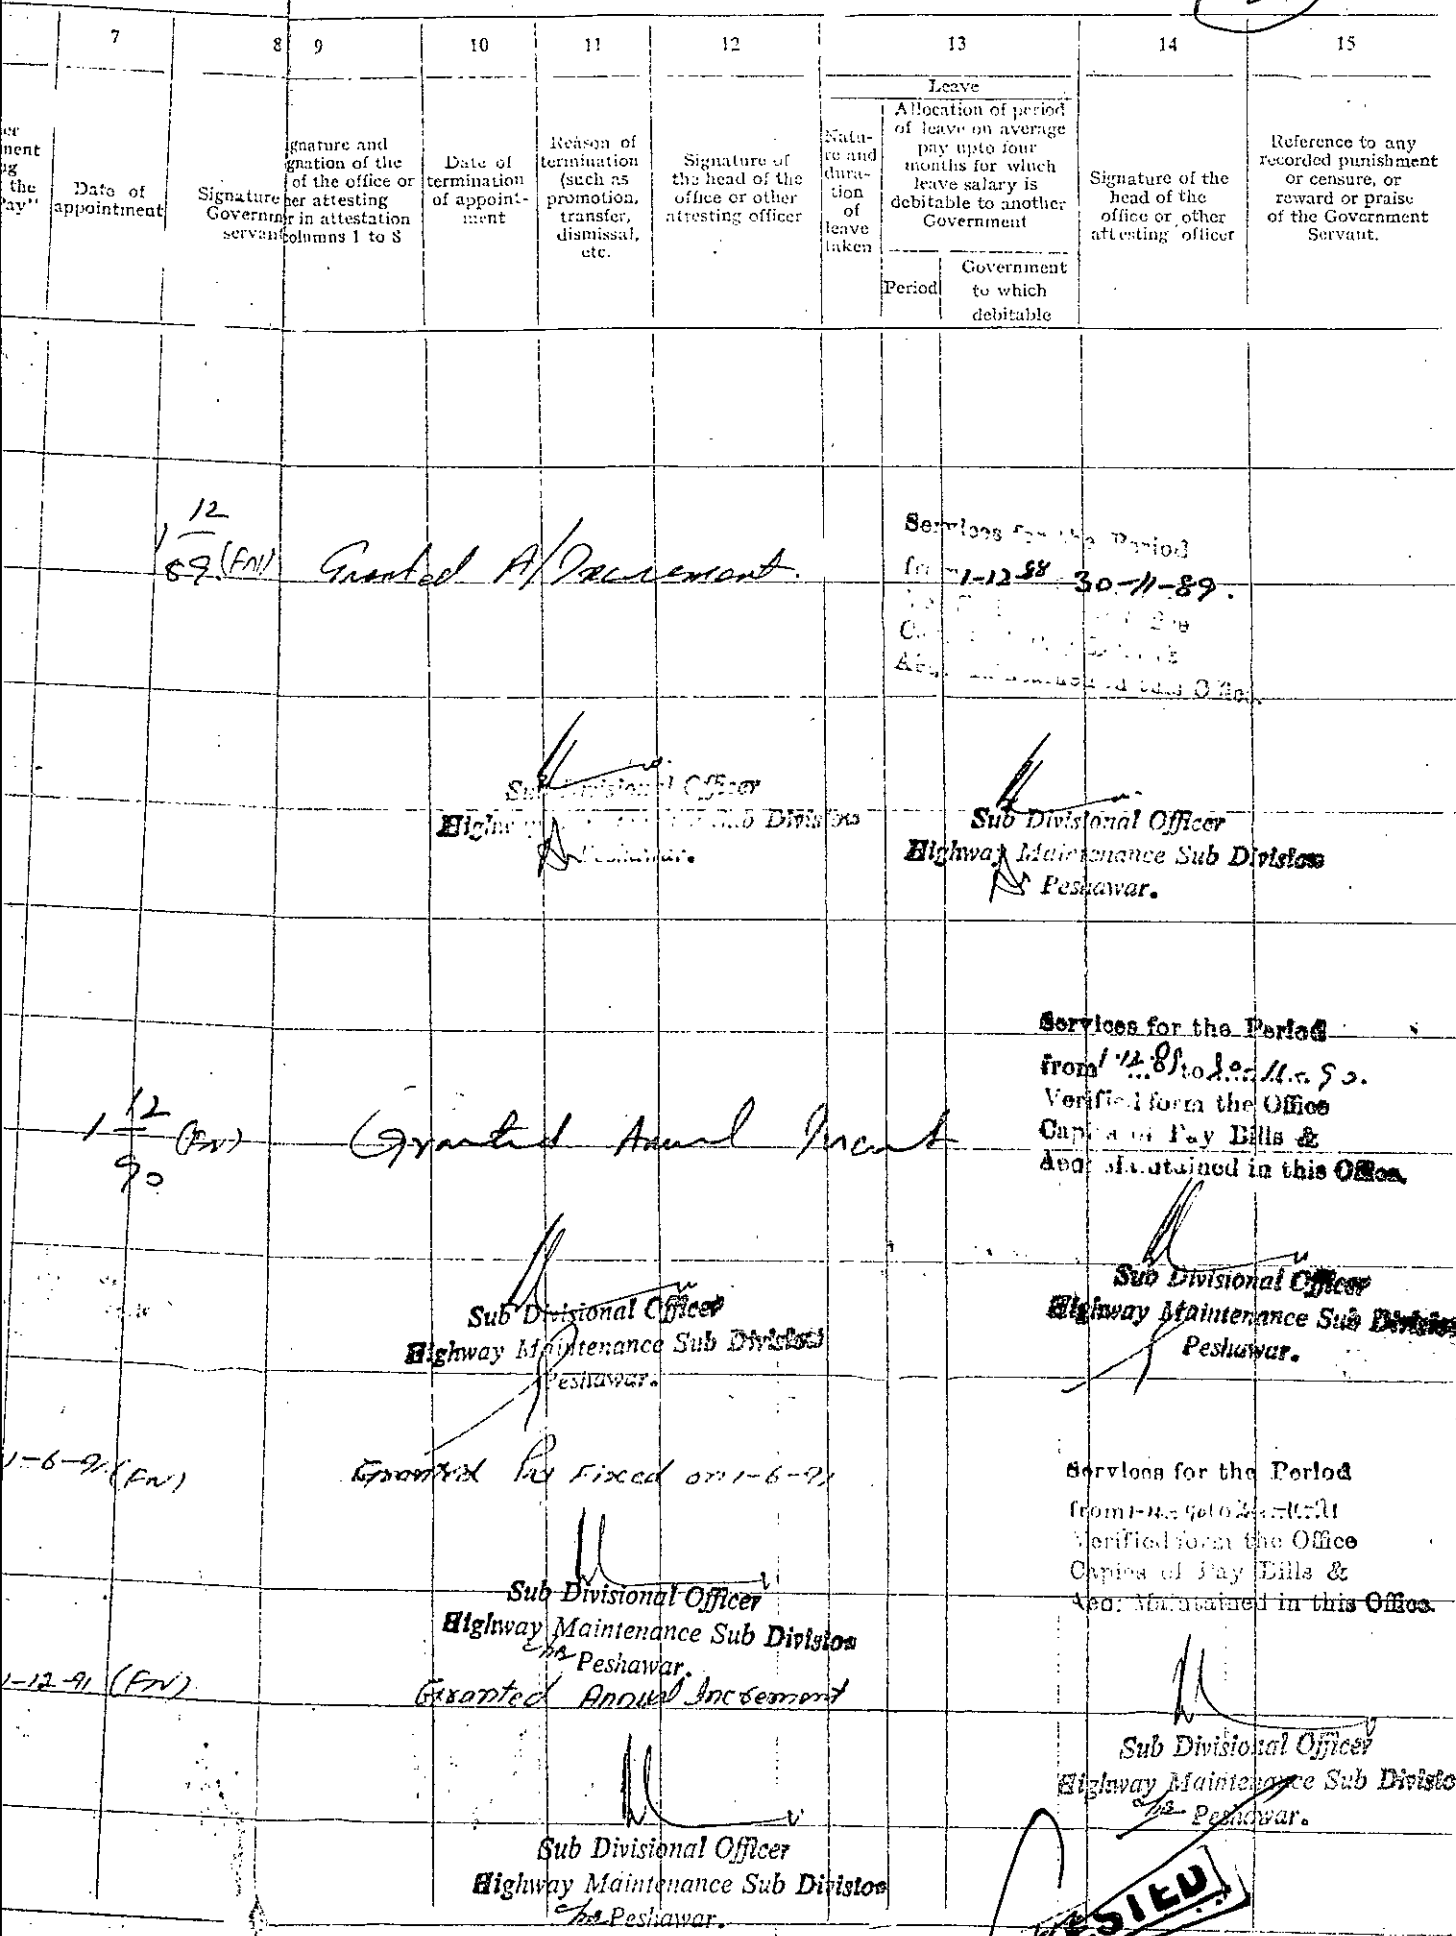 7 8 9 10 11 12 13 14 15
Leave
Date of
appointment
Signature
Governm
servant
gnature and
gnation of the
of the office or
er attesting
r in attestation
columns 1 to 8
Date of
termination
of appoint-
ment
Reason of
termination
(such as
promotion,
transfer,
dismissal,
etc.
Signature of
the head of the
office or other
attesting officer
Natu-
re and
dura-
tion
of
leave
taken
Allocation of period
of leave on average
pay upto four
months for which
leave salary is
debitable to another
Government
Period
Government
to which
debitable
Signature of the
head of the
office or other
attesting officer
Reference to any
recorded punishment
or censure, or
reward or praise
of the Government
Servant.
1 12/89 (FN) Granted A/Increment.
Services for the Period
from 1-12-88 30-11-89.
Sub Divisional Officer
Highway Sub Division
Peshawar.
Sub Divisional Officer
Highway Maintenance Sub Division
Peshawar.
1 12/90 (FN) Granted Annual
Services for the Period
from 1-12-89 to 30-11-90.
Verified form the Office
Copies of Pay Bills &
Acq: Maintained in this Office.
Sub Divisional Officer
Highway Maintenance Sub Division
Peshawar.
Sub Divisional Officer
Highway Maintenance Sub Division
Peshawar.
1-6-91 (FN) Granted Fixed on 1-6-91
Services for the Period
Verified form the Office
Copies of Pay Bills &
Acq: Maintained in this Office.
Sub Divisional Officer
Highway Maintenance Sub Division
Peshawar.
1-12-91 (FN) Granted Annual Increment
Sub Divisional Officer
Highway Maintenance Sub Divisio
Peshawar.
Sub Divisional Officer
Highway Maintenance Sub Division
Peshawar.